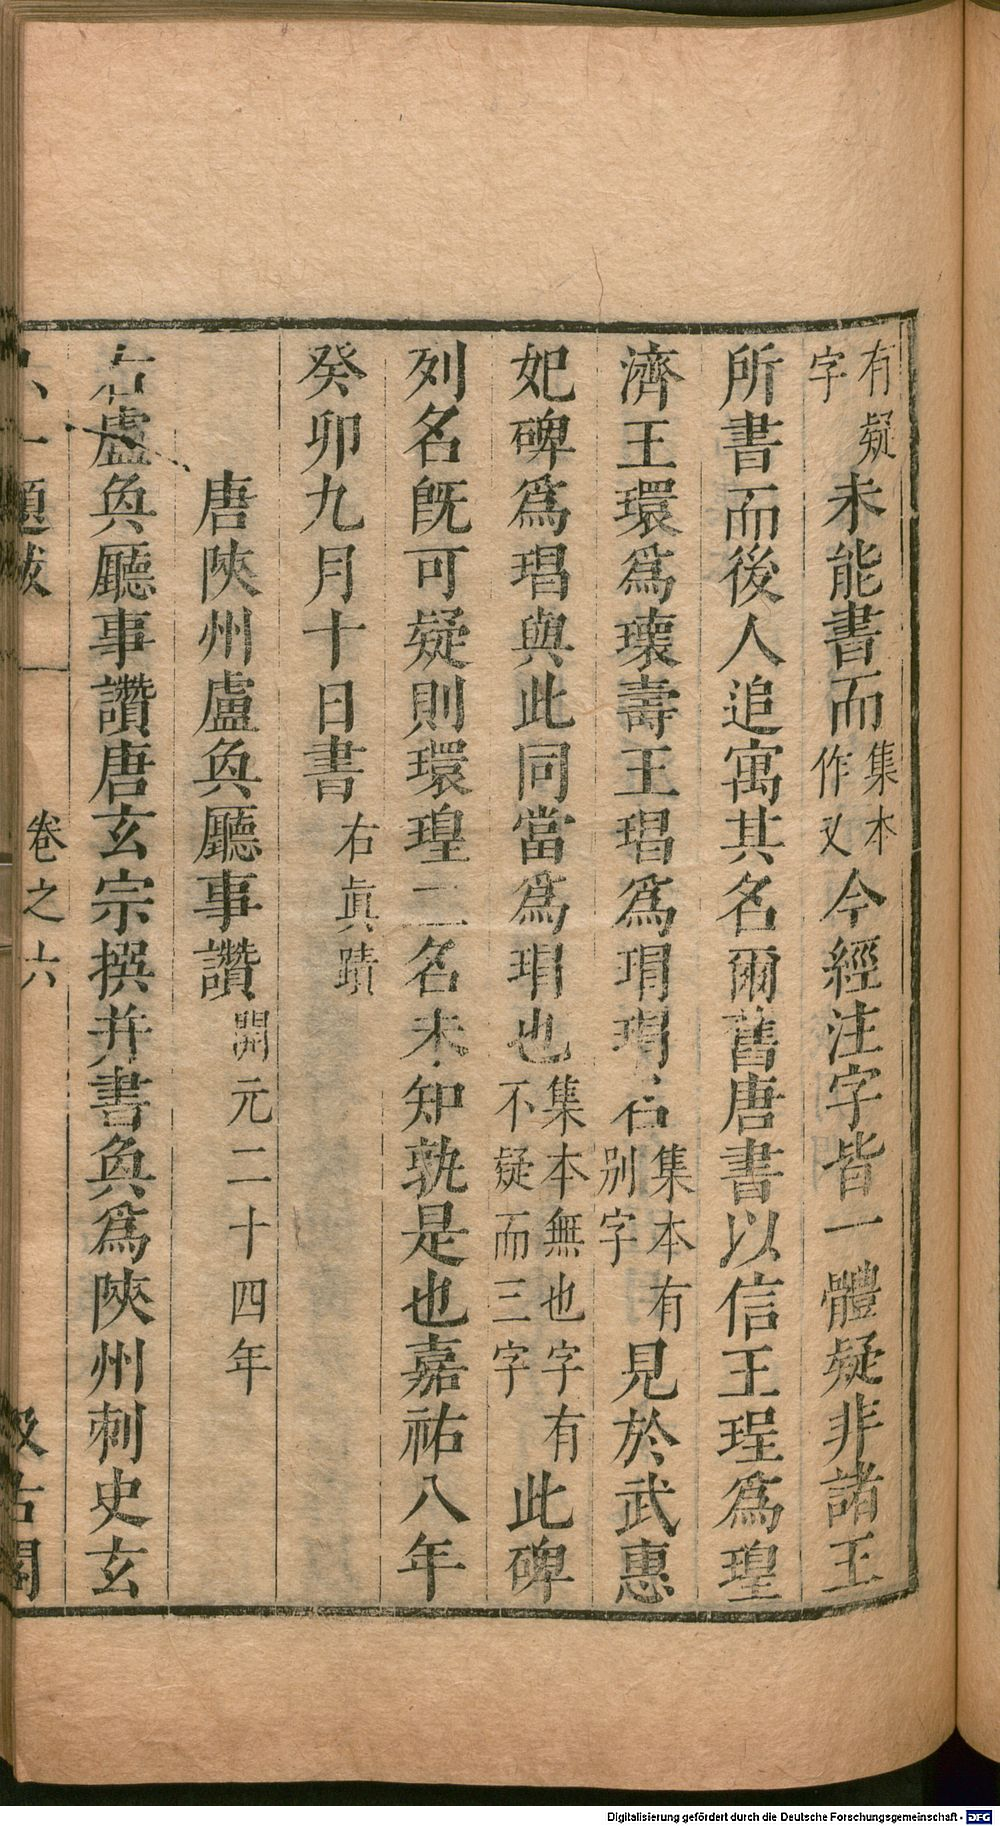 有疑字未能書而集本作又今經注字皆一體疑非諸王
所書而後人追寓其名爾舊唐書以信王珵爲瑝
濟王環爲瓌壽王琩爲瑁瑁名集本有别字見於武惠
妃碑爲琩與此同當爲瑁也集本無也字有不疑而三字此碑
列名既可疑則環瑝二名未知孰是也嘉祐八年
癸卯九月十日書右眞蹟
唐陝州盧奐廳事讚開元二十四年
右盧奐廳事讚唐玄宗撰并書奐爲陝州刺史玄
題跋 卷之六 汲古閣
Digitalisierung gefördert durch die Deutsche Forschungsgemeinschaft - DFG